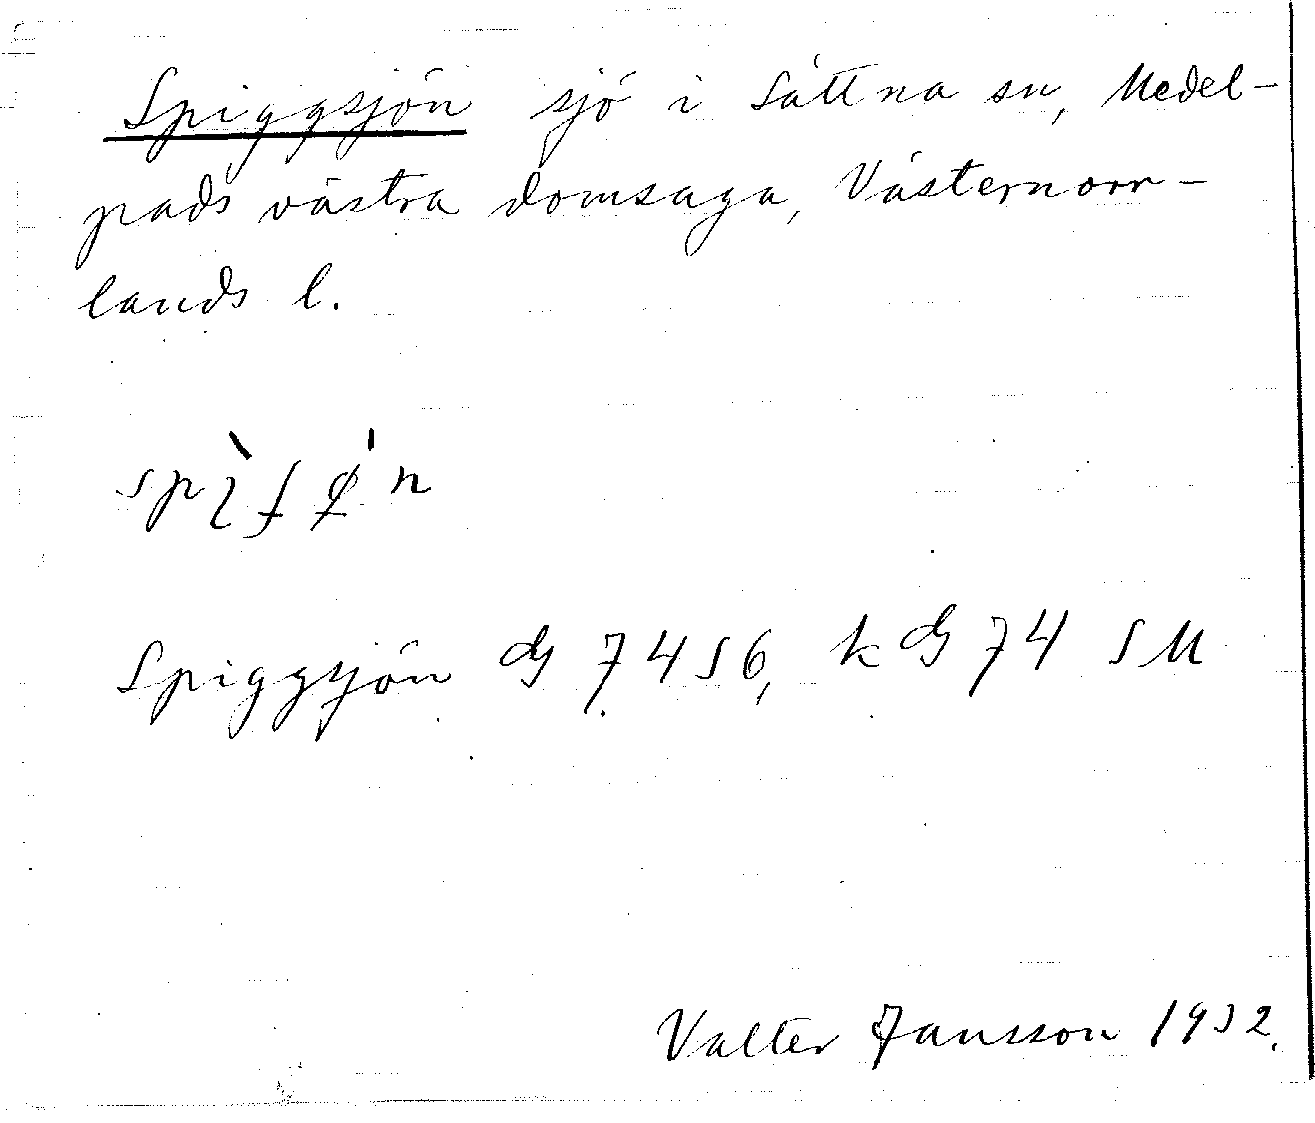 Spiggsjön sjö i Sättna sn, Medel-
pads västra domsaga, Västernorr-
lands l.
Spiggsjön G 7456, k G 74 SM
Valter Jansson 1932.